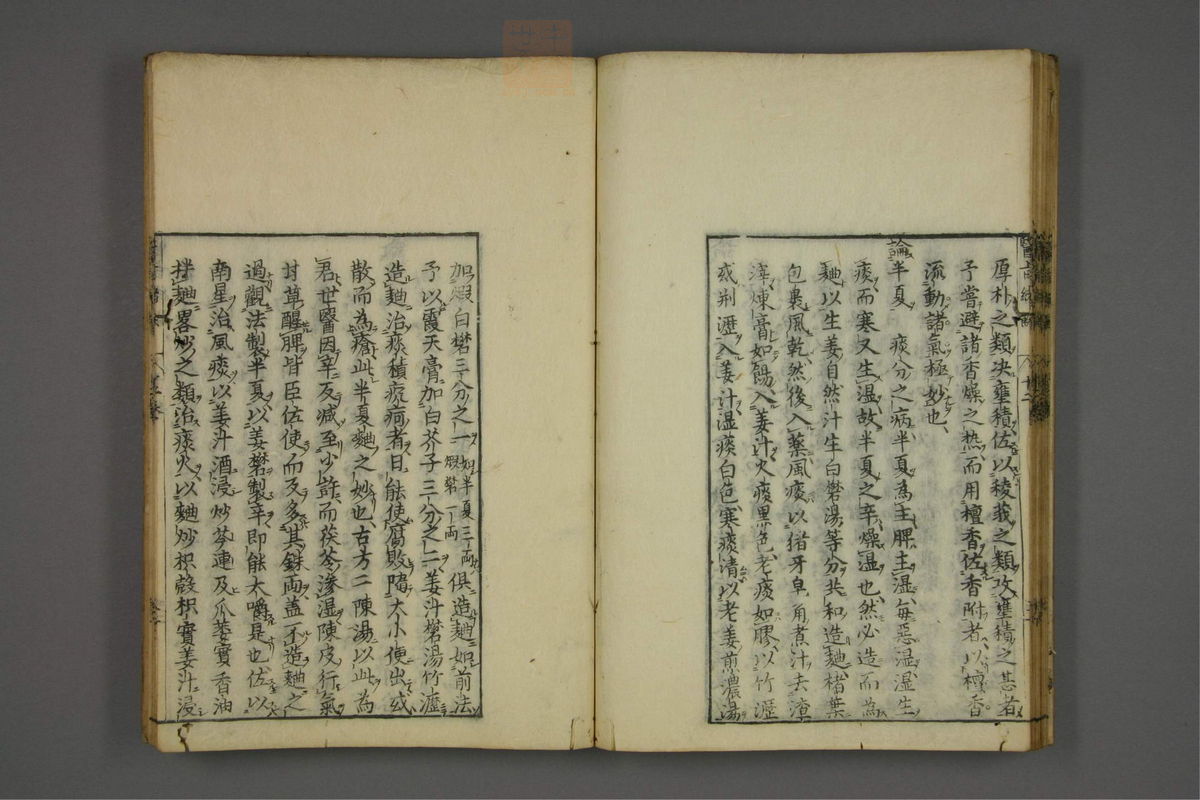 厚朴之類决壅積佐以稜莪之類攻壅積之甚者
予嘗避諸香燥之热而用檀香佐香附者以檀香
流動諸氣極妙也
論半夏 痰分之病半夏為主脾主湿毎惡湿湿生
痰而寒又生湿故半夏之辛燥湿也然必造而為
麯以生姜自然汁生白礬湯等分共和造麯楮葉
包裹風乾然後入藥風痰以猪牙皂角煮汁去渣
煉膏如餳入姜汁火痰黒色老痰如膠以竹瀝
或荆瀝入姜汁湿痰白色寒痰清以老姜煎濃湯
加煅白礬三分之一如半夏三両煅礬一両俱造麯如前法
予以霞天膏加白芥子三分之二姜汁礬湯竹瀝
造麯治痰積痰病者日能使腐敗随大小便出或
散而為瘡此半夏麯之妙也古方二陳湯以此為
君世醫因辛反减至少許而茯苓滲湿陳皮行氣
甘草醒脾皆臣佐使而反多其銖両盖不造麯之
過觀法製半夏以姜礬製辛即能大嚼是也佐以
南星治風痰以姜汁酒浸炒芩連及瓜蔞實香油
拌麯畧炒之類治痰火以麯炒枳殻枳實姜汁浸